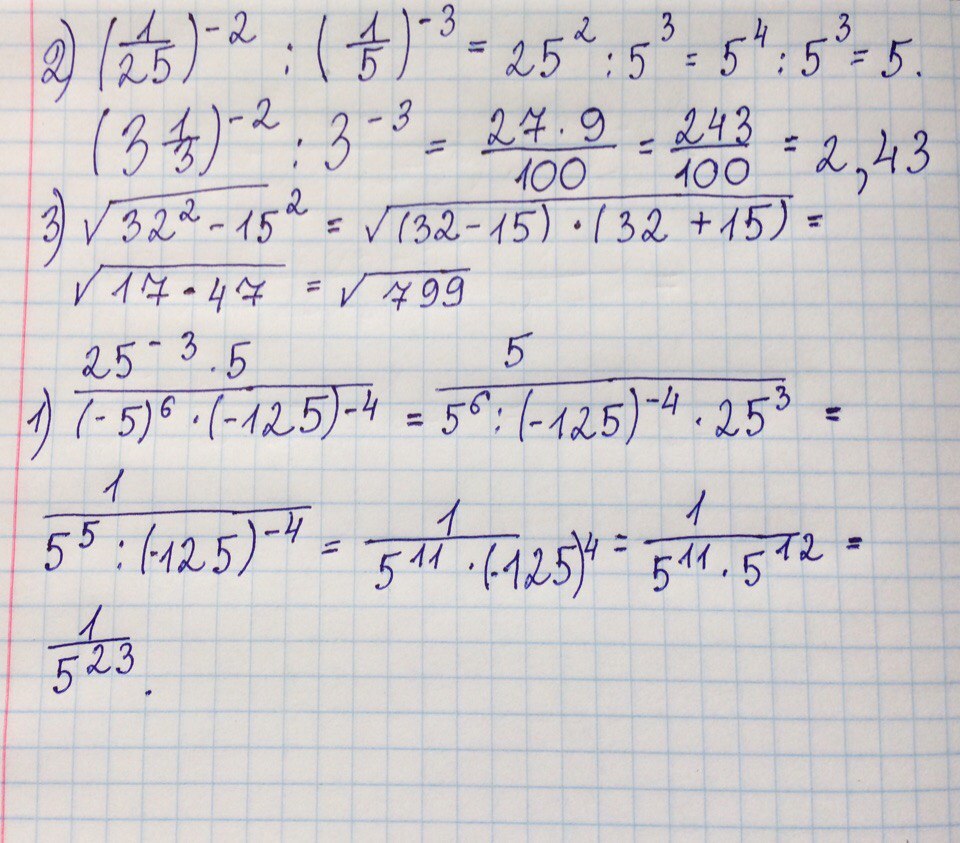 2) (1/25)^-2 : (1/5)^-3 = 25^2 : 5^3 = 5^4 : 5^3 = 5.
(3 1/3)^-2 : 3^-3 = (27 · 9)/100 = 243/100 = 2,43
3) √(32^2 - 15^2) = √((32 - 15) · (32 + 15)) =
√(17 · 47) = √799
1) (25^-3 · 5)/((-5)^6 · (-125)^-4) = 5/(5^6 : (-125)^-4 · 25^3) =
1/(5^5 : (-125)^-4) = 1/(5^11 · (-125)^4) = 1/(5^11 · 5^12) =
1/5^23.